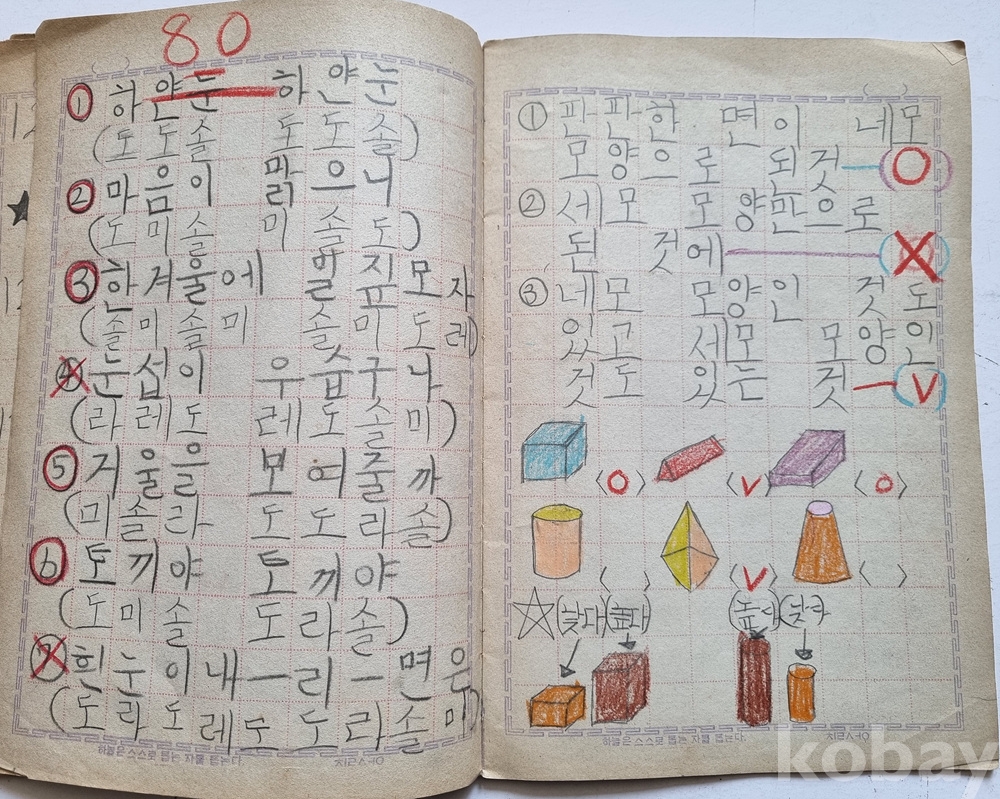 80
① 하얀눈 하얀눈
(도도솔 도도솔)
② 마음이 맑으니
(도미솔 미솔도)
③ 한겨울에 밀짚모자
(솔미솔미 솔미도레)
④ 눈섭이 우습구나
(라레도 레도솔미)
⑤ 거울을 보여줄까
(미솔라 도도라솔)
⑥ 토끼야 토끼야
(도미솔 도라솔)
⑦ 흰눈이내ー리ー면은
(도라도레도 도라솔미)
① 판판한 면이 네모
모양으로 되 것 (O)
② 세모 모양만으로
된 것에 (X)
③ 네모 모양인 것도
있고 세모 모양인
것도 있는 것 (V)
〈O〉 〈V〉 〈O〉
〈 〉 〈V〉 〈 〉
☆(낮다)(높다) (높다)(낮다)
kobay